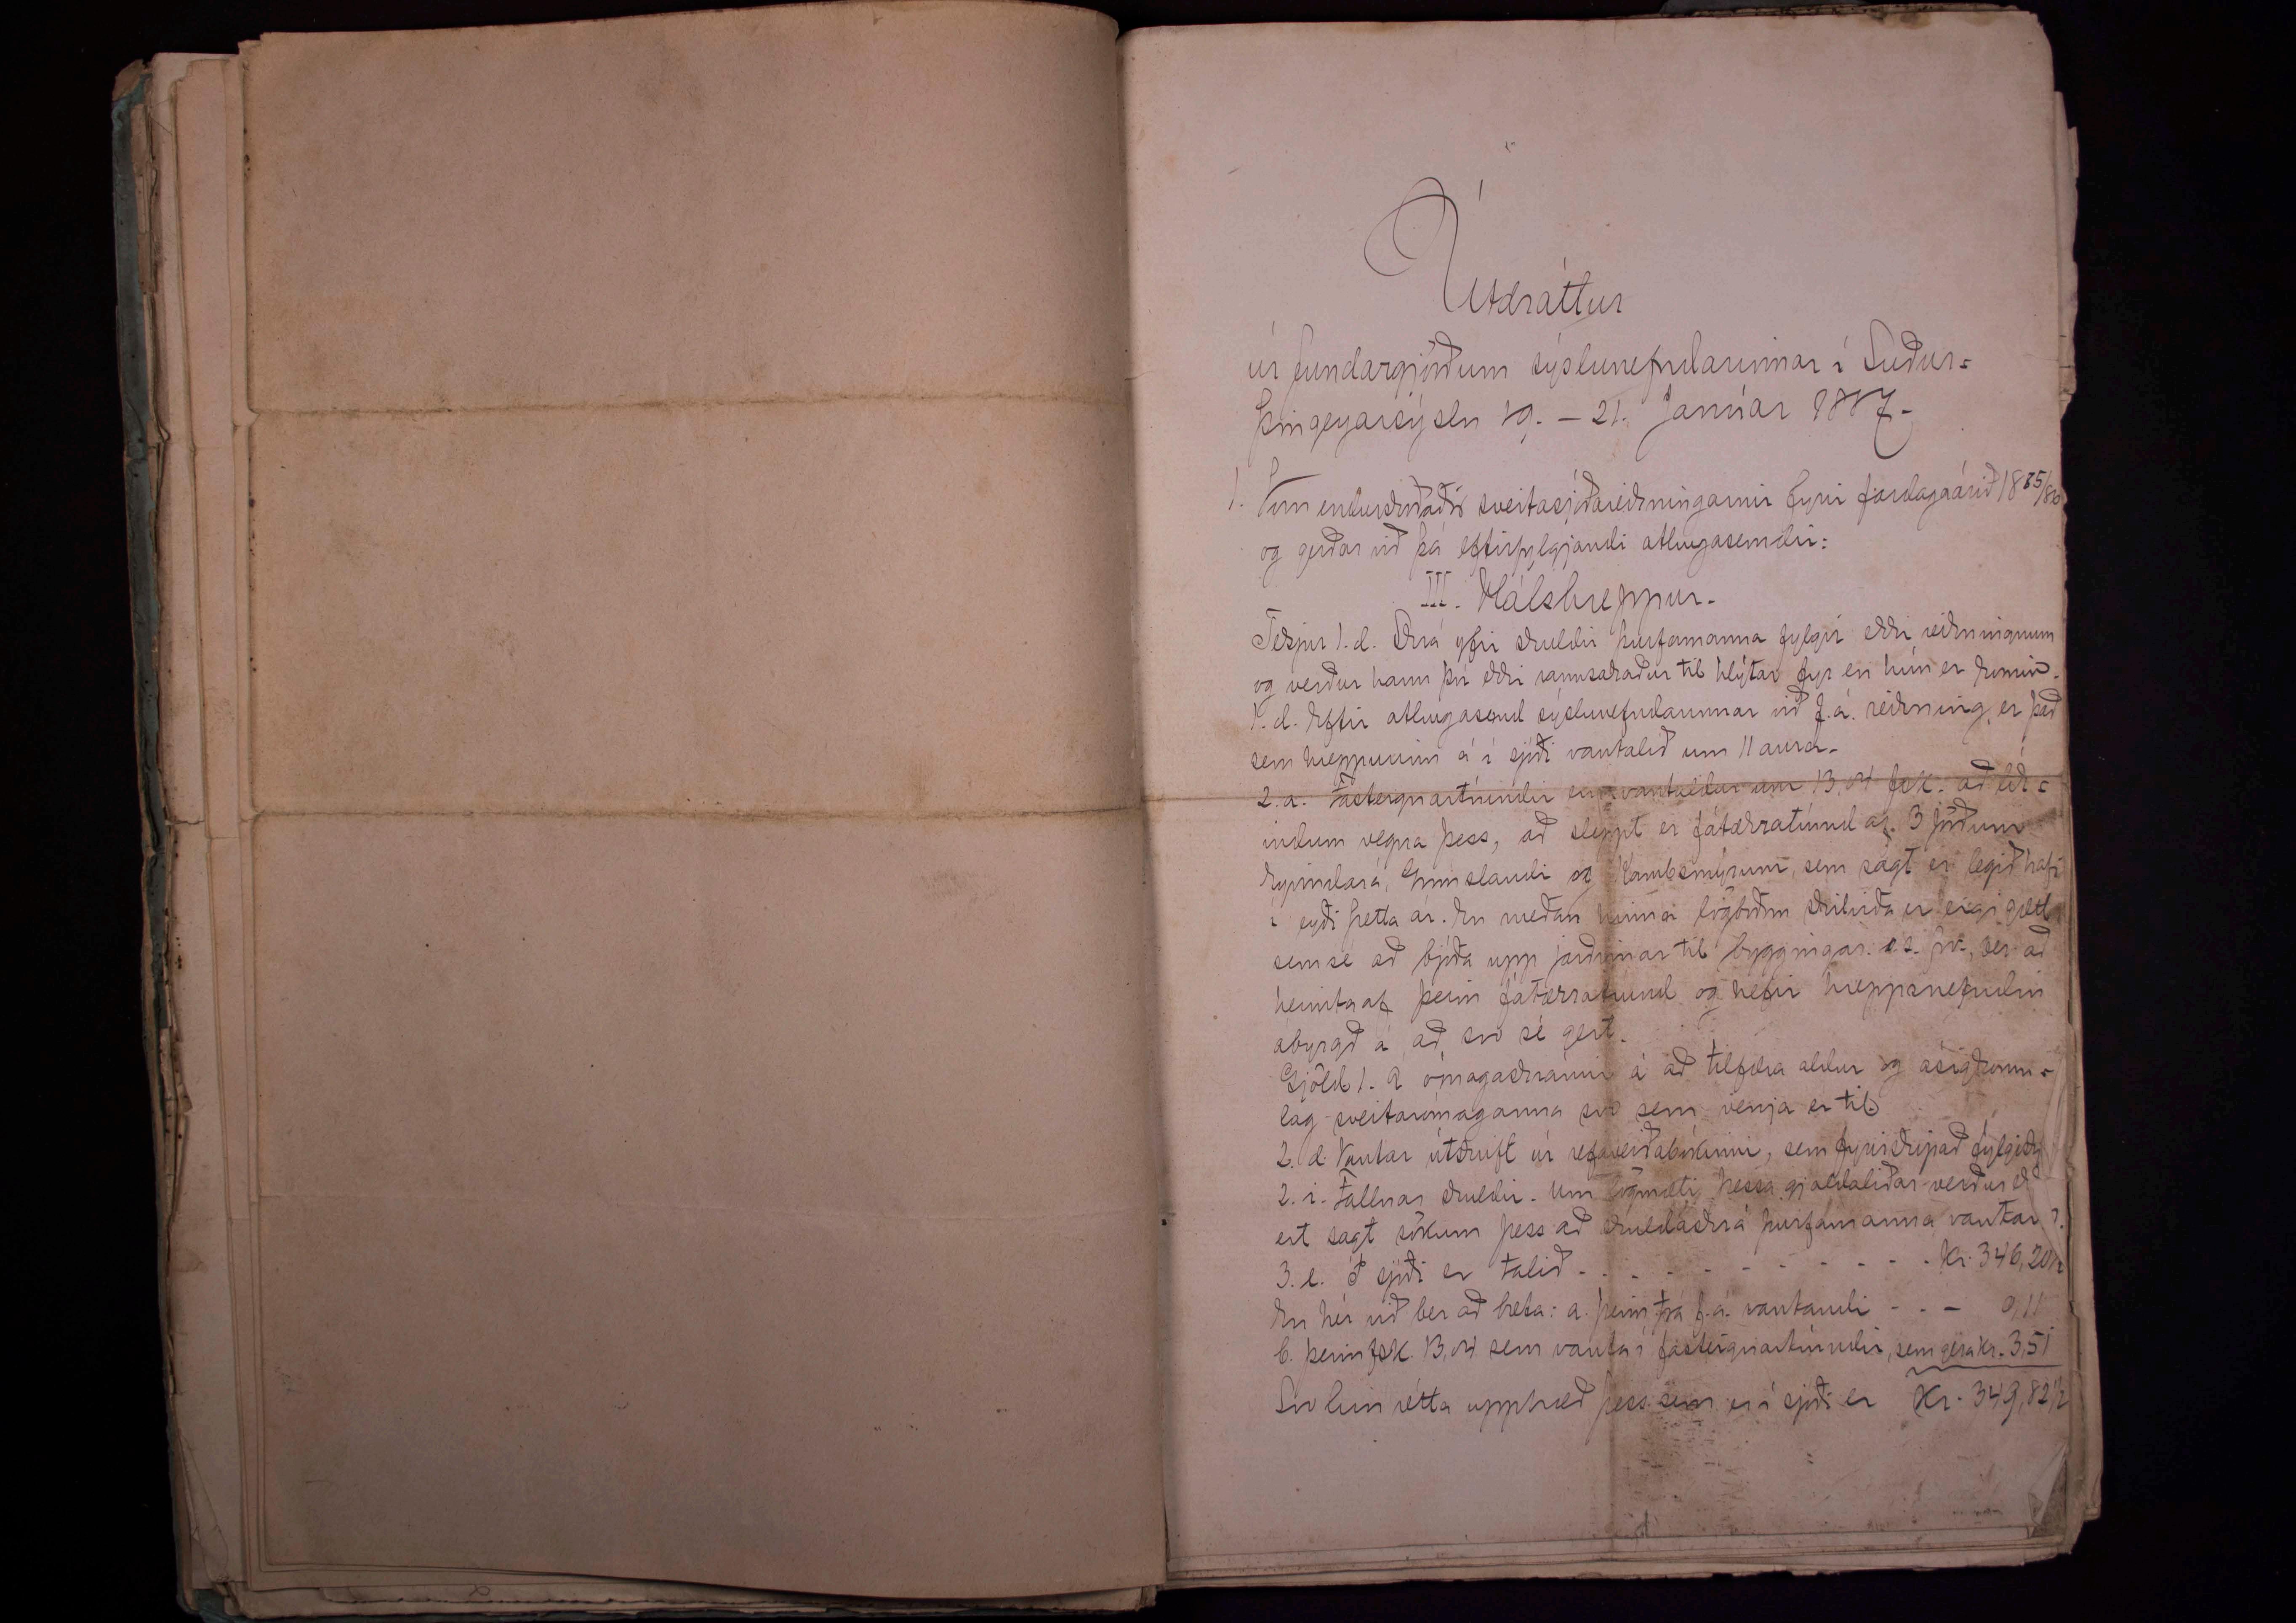 Útdráttur
úr fundargjörðum sýslunefndarinnar í Suður-
Þingeyarsýslu 19. – 21. Janúar 1887.
1. Vóru endurskoðaðir sveitasjóðareikningarnir fyrir fardagaárið 1885/86
og gerðar við þá eftirfylgjandi athugasemdir:
III. Hálshreppur.
Tekjur 1. d. Skrá yfir skuldir þurfamanna fylgir ekki reikningnum
og verður hann því ekki rannsakaður til hlýtar fyr en hún er komin.
1. d. Eftir athugasemd sýslunefndarinnar við f. á. reikning, er það
sem hreppurinn á í sjóði vantalið um 11 aura.
2. a. Fasteignartíundir eru vantaldar um 13,04 fsk. að lík-
indum vegna þess, að sleppt er fátækratíund af 3 jörðum
Eyvindará, Grímslandi og Kambsmýrum, sem sagt er legið hafi
í eyði þetta ár. En meðan hinna lögboðnu skilyrða er eigi gætt
sem sé að bjóða upp jarðirnar til byggingar o. s. frv., ber að
heimta af þeim fátækratíund og hefir hreppsnefndin
ábyrgð á, að svo sé gert.
Gjöld 1. Á ómagaskránni á að tilfæra aldur og ásigkomu-
lag sveitarómaganna svo sem venja er til.
2. d. Vantar útskrift úr refaveiðabókinni, sem fyrirskipað fylgiskj.
2. i. Fallnar skuldir. Um lögmæti þessa gjaldaliðar verður ekk
ert sagt sökum þess að skuldaskrá þurfamanna vantar.
3. e. Í sjóði er talið - - - - - - - - - - Kr. 346,20½
En hér við ber að bæta: a. þeim frá f. á. vantandi - - - 0,11
b. þeim fsk. 13,04 sem vanta í fasteignartíundir, sem gera kr. 3,51
Svo hin rétta upphæð þess sem er í sjóði er Kr. 349,82½